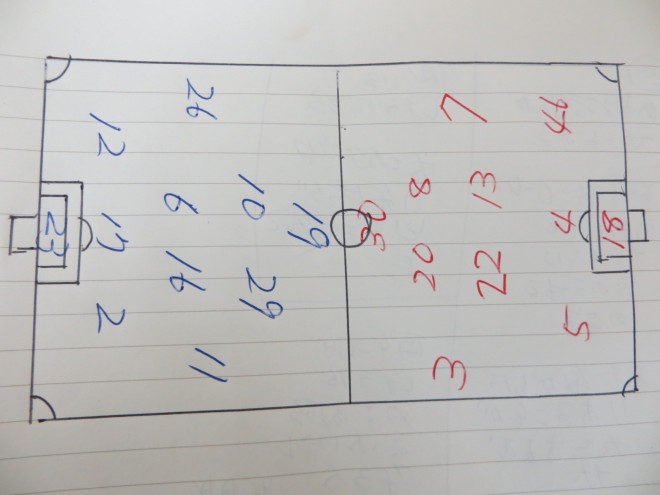 81
44 4 5
7 13 22 3
8 20
50
19
10 29
26 6 16 11
12 17 2
23